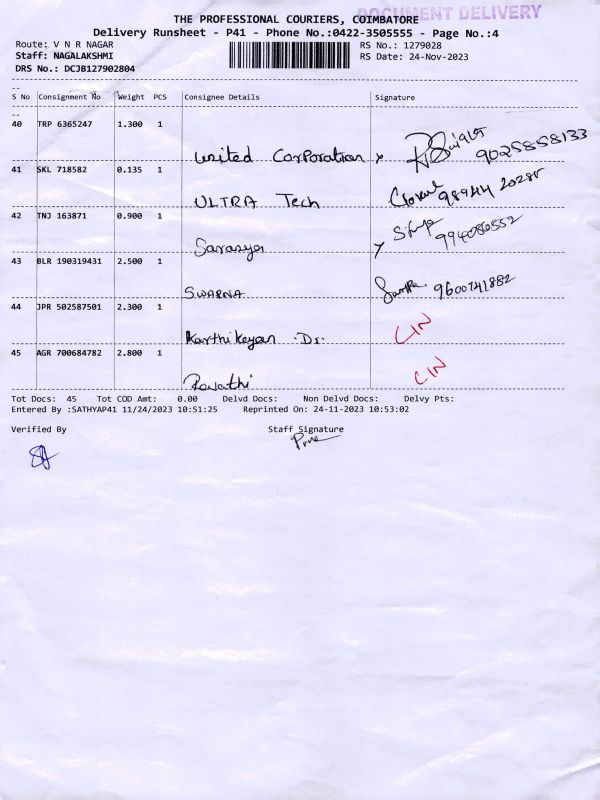 DOCUMENT DELIVERY
THE PROFESSIONAL COURIERS, COIMBATORE
Delivery Runsheet - P41 - Phone No.:0422-3505555 - Page No.:4
Route: V N R NAGAR RS No.: 1279028
Staff: NAGALAKSHMI RS Date: 24-Nov-2023
DRS No.: DCJB127902804
S No Consignment No Weight PCS Consignee Details Signature
40 TRP 6365247 1.300 1
United Corporation 9025858133
41 SKL 718582 0.135 1
ULTRA Tech 98944 20285
42 TNJ 163871 0.900 1
Saranya 994086552
43 BLR 190319431 2.500 1
SWARNA 9600741882
44 JPR 502587501 2.300 1
Karthikeyan .Dr. CIN
45 AGR 700684782 2.800 1
Revathi CIN
Tot Docs: 45 Tot COD Amt: 0.00 Delvd Docs: Non Delvd Docs: Delvy Pts:
Entered By :SATHYAP41 11/24/2023 10:51:25 Reprinted On: 24-11-2023 10:53:02
Verified By Staff Signature